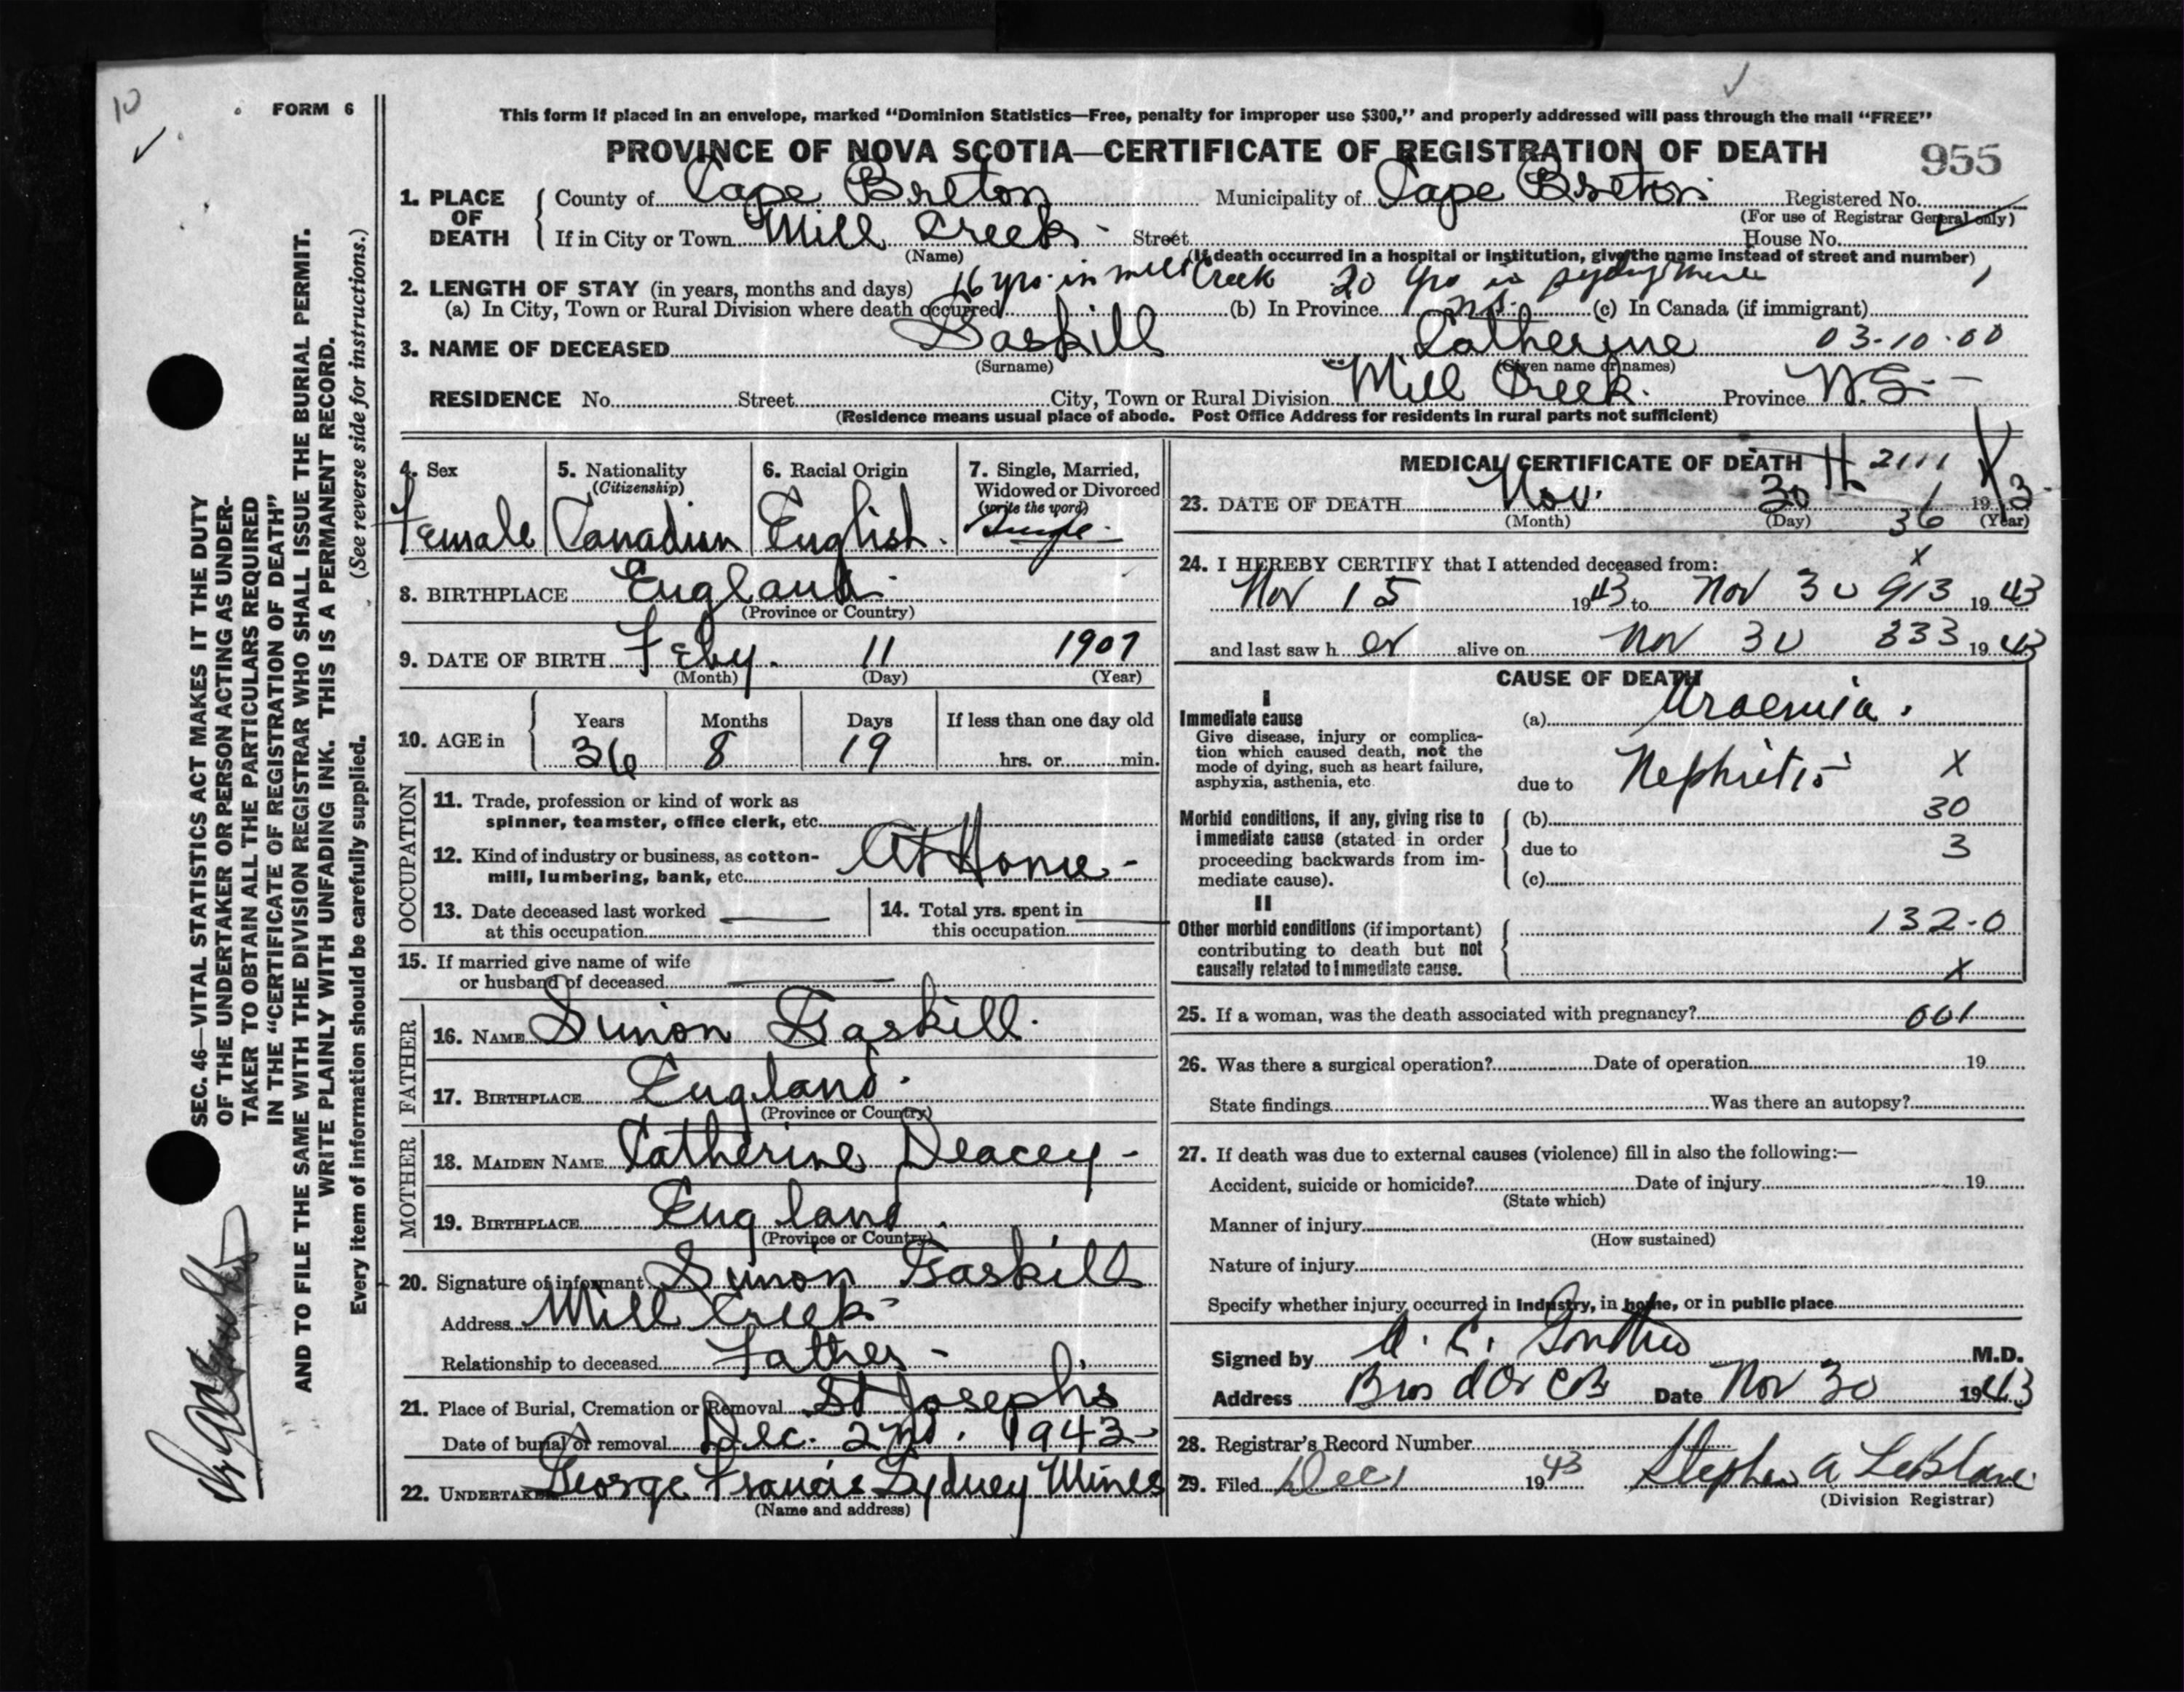 10
FORM 6
SEC. 46—VITAL STATISTICS ACT MAKES IT THE DUTY
OF THE UNDERTAKER OR PERSON ACTING AS UNDER-
TAKER TO OBTAIN ALL THE PARTICULARS REQUIRED
IN THE "CERTIFICATE OF REGISTRATION OF DEATH"
AND TO FILE THE SAME WITH THE DIVISION REGISTRAR WHO SHALL ISSUE THE BURIAL PERMIT.
WRITE PLAINLY WITH UNFADING INK. THIS IS A PERMANENT RECORD.
Every item of information should be carefully supplied. (See reverse side for instructions.)
This form if placed in an envelope, marked "Dominion Statistics—Free, penalty for improper use $300," and properly addressed will pass through the mail "FREE"
PROVINCE OF NOVA SCOTIA—CERTIFICATE OF REGISTRATION OF DEATH 955
1. PLACE OF DEATH
County of Cape Breton Municipality of Cape Breton Registered No.
(For use of Registrar General only)
If in City or Town Mill Creek - Street House No.
(Name) (If death occurred in a hospital or institution, give the name instead of street and number)
2. LENGTH OF STAY (in years, months and days) 16 yrs. in mill Creek 20 yrs in Sydney Mines 1
(a) In City, Town or Rural Division where death occurred (b) In Province N.S. (c) In Canada (if immigrant)
3. NAME OF DECEASED Gaskill Catherine 03-10-00
(Surname) (Given name or names)
RESIDENCE No. Street City, Town or Rural Division Mill Creek. Province N.S.-
(Residence means usual place of abode. Post Office Address for residents in rural parts not sufficient)
4. Sex
Female
5. Nationality
(Citizenship)
Canadian
6. Racial Origin
English.
7. Single, Married,
Widowed or Divorced
(write the word)
Single.
8. BIRTHPLACE England.
(Province or Country)
9. DATE OF BIRTH Feby. 11 1907
(Month) (Day) (Year)
10. AGE in
Years Months Days If less than one day old
36 8 19 hrs. or min.
OCCUPATION
11. Trade, profession or kind of work as
spinner, teamster, office clerk, etc.
12. Kind of industry or business, as cotton-
mill, lumbering, bank, etc. At Home -
13. Date deceased last worked
at this occupation
14. Total yrs. spent in
this occupation
15. If married give name of wife
or husband of deceased
FATHER
16. NAME Simon Gaskill.
17. BIRTHPLACE England.
(Province or Country)
MOTHER
18. MAIDEN NAME Catherine Deacey -
19. BIRTHPLACE England.
(Province or Country)
20. Signature of informant Simon Gaskill
Address Mill Creek
Relationship to deceased Father -
21. Place of Burial, Cremation or Removal St Josephs
Date of burial or removal Dec. 2nd. 1943-
22. UNDERTAKER George Francis Sydney Mines
(Name and address)
MEDICAL CERTIFICATE OF DEATH 2111
23. DATE OF DEATH Nov. 30th 1943
(Month) (Day) 36 (Year)
24. I HEREBY CERTIFY that I attended deceased from: x
Nov 15 1943 to Nov 30 913 1943
and last saw h er alive on Nov 30 333 1943
CAUSE OF DEATH
I
Immediate cause
Give disease, injury or complica-
tion which caused death, not the
mode of dying, such as heart failure,
asphyxia, asthenia, etc.
(a) Uraemia.
due to Nephritis X
Morbid conditions, if any, giving rise to
immediate cause (stated in order
proceeding backwards from im-
mediate cause).
(b) 30
due to 3
(c)
II
Other morbid conditions (if important)
contributing to death but not
causally related to immediate cause.
132-0
x
25. If a woman, was the death associated with pregnancy? 001
26. Was there a surgical operation? Date of operation 19
State findings Was there an autopsy?
27. If death was due to external causes (violence) fill in also the following:—
Accident, suicide or homicide? Date of injury 19
(State which)
Manner of injury
(How sustained)
Nature of injury
Specify whether injury occurred in Industry, in home, or in public place
Signed by A. C. M.D.
Address Bras d'Or CB Date Nov 30 1943
28. Registrar's Record Number
29. Filed Dec 1 1943 Stephen A LeBlanc
(Division Registrar)